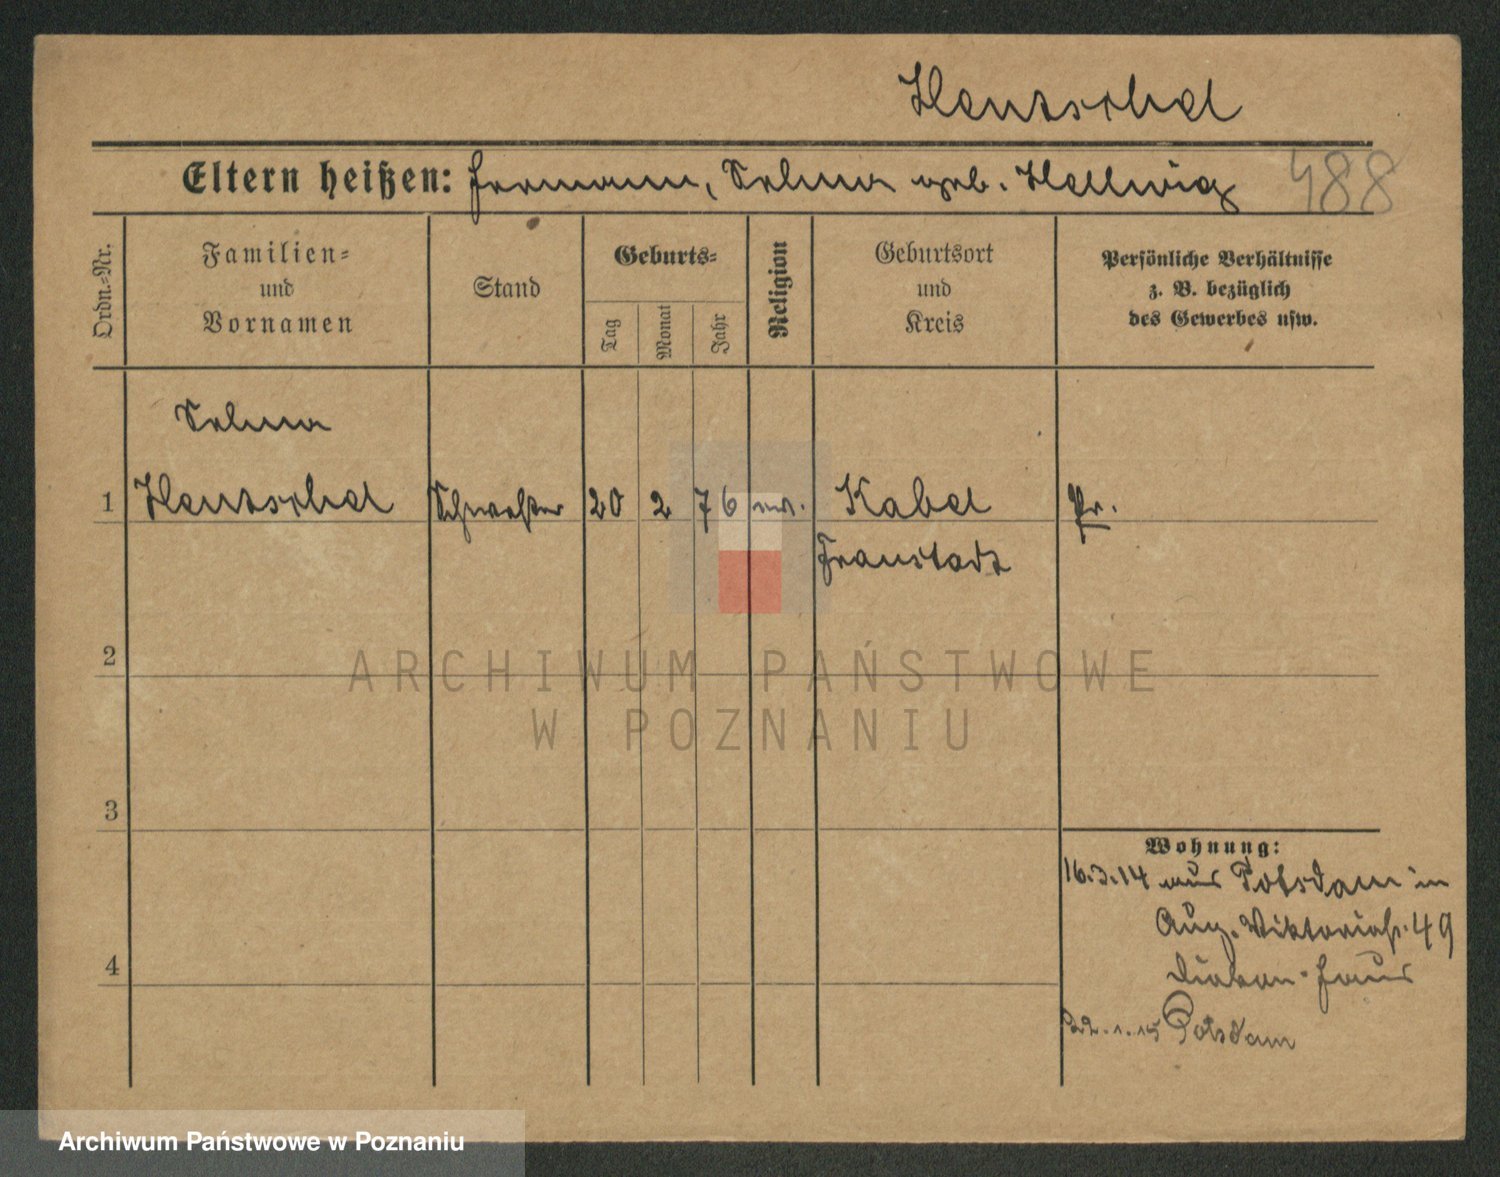 Hentschel
Eltern heißen: Hermann, Selma geb. Hellwig 488
Ordn.-Nr.
Familien-
und
Vornamen
Stand
Geburts-
Tag
Monat
Jahr
Religion
Geburtsort
und
Kreis
Persönliche Verhältnisse
z. B. bezüglich
des Gewerbes usw.
Selma
1 Hentschel Schwester 20 2 76 ev. Kabel Pr.
Fraustadt
2
ARCHIWUM PAŃSTWOWE
W POZNANIU
3
Wohnung:
16.3.14 aus Potsdam in
Aug. Viktoriastr. 49
4 Diakon-Haus
22.1.15 Potsdam
Archiwum Państwowe w Poznaniu